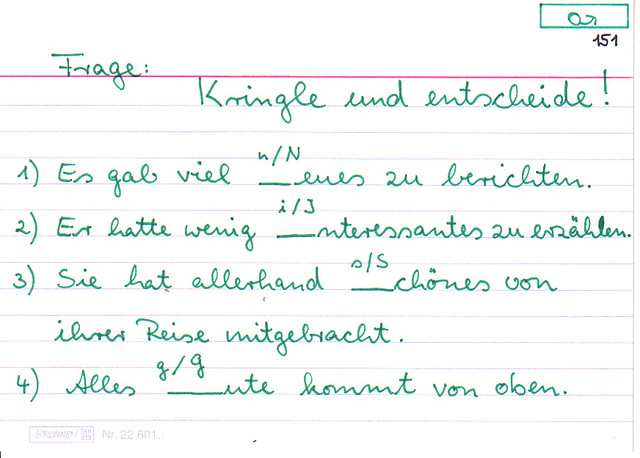 151
Frage:
Kringle und entscheide!
n/N
1) Es gab viel __eues zu berichten.
i/I
2) Er hatte wenig __nteressantes zu erzählen.
s/S
3) Sie hat allerhand __chönes von
ihrer Reise mitgebracht.
g/G
4) Alles __ute kommt von oben.
BRUNNEN Nr. 22 601..